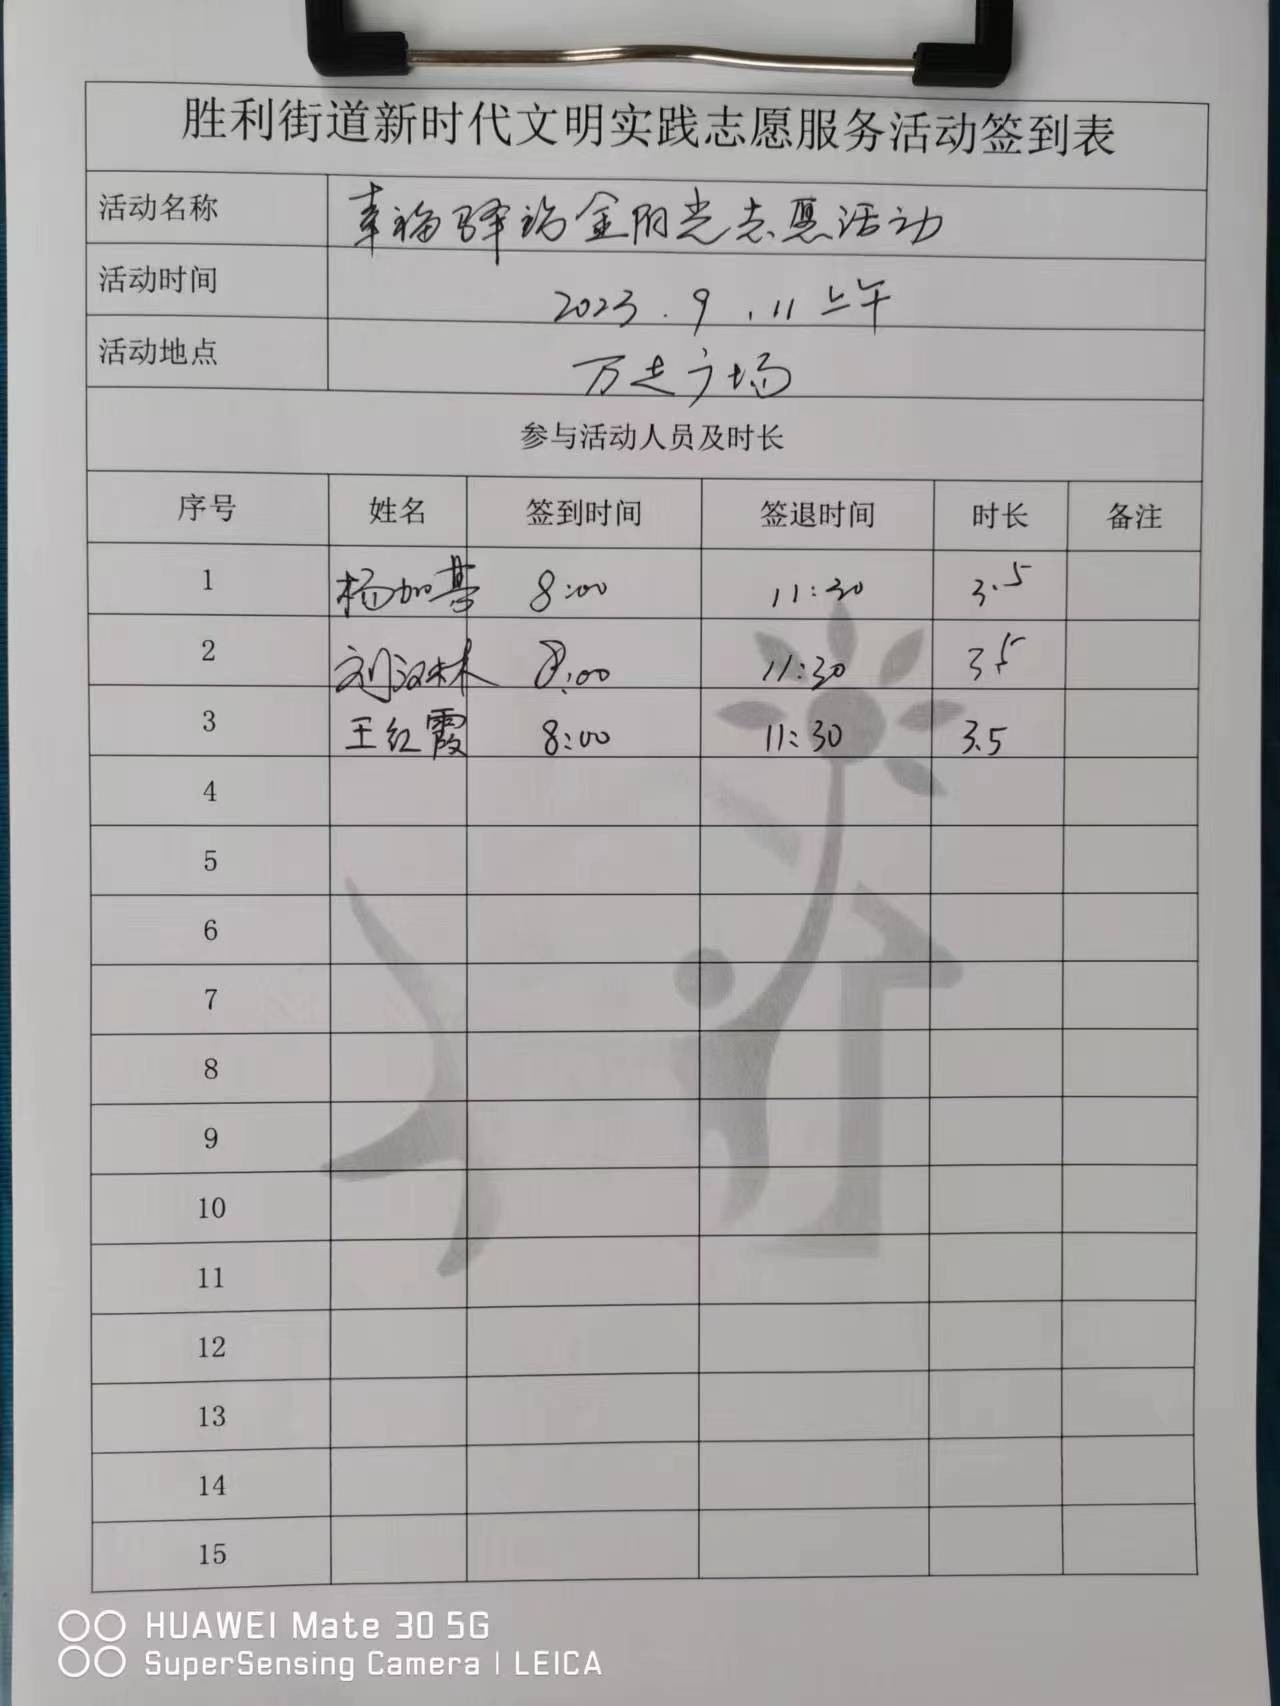 胜利街道新时代文明实践志愿服务活动签到表
活动名称 幸福驿站金阳光志愿活动
活动时间 2023.9.11上午
活动地点 万达广场
参与活动人员及时长
序号 姓名 签到时间 签退时间 时长 备注
1 杨加基 8:00 11:30 3.5
2 刘汉林 8:00 11:30 3.5
3 王红霞 8:00 11:30 3.5
4
5
6
7
8
9
10
11
12
13
14
15
HUAWEI Mate 30 5G
SuperSensing Camera | LEICA